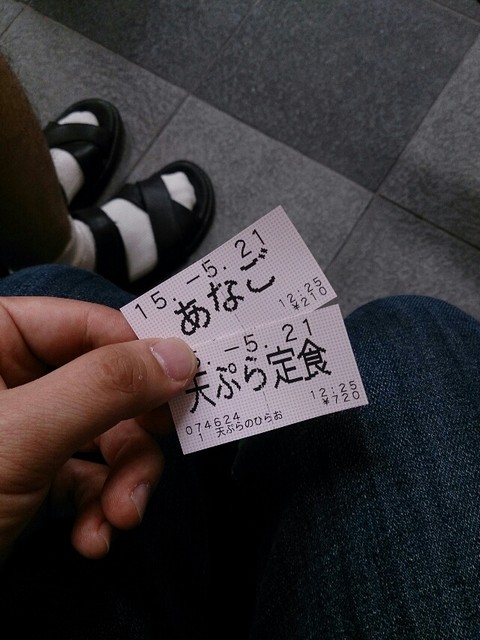 15.-5.21
あなご
12:25
¥210
5.-5.21
天ぷら定食
12:25
¥720
074624
1 天ぷらのひらお